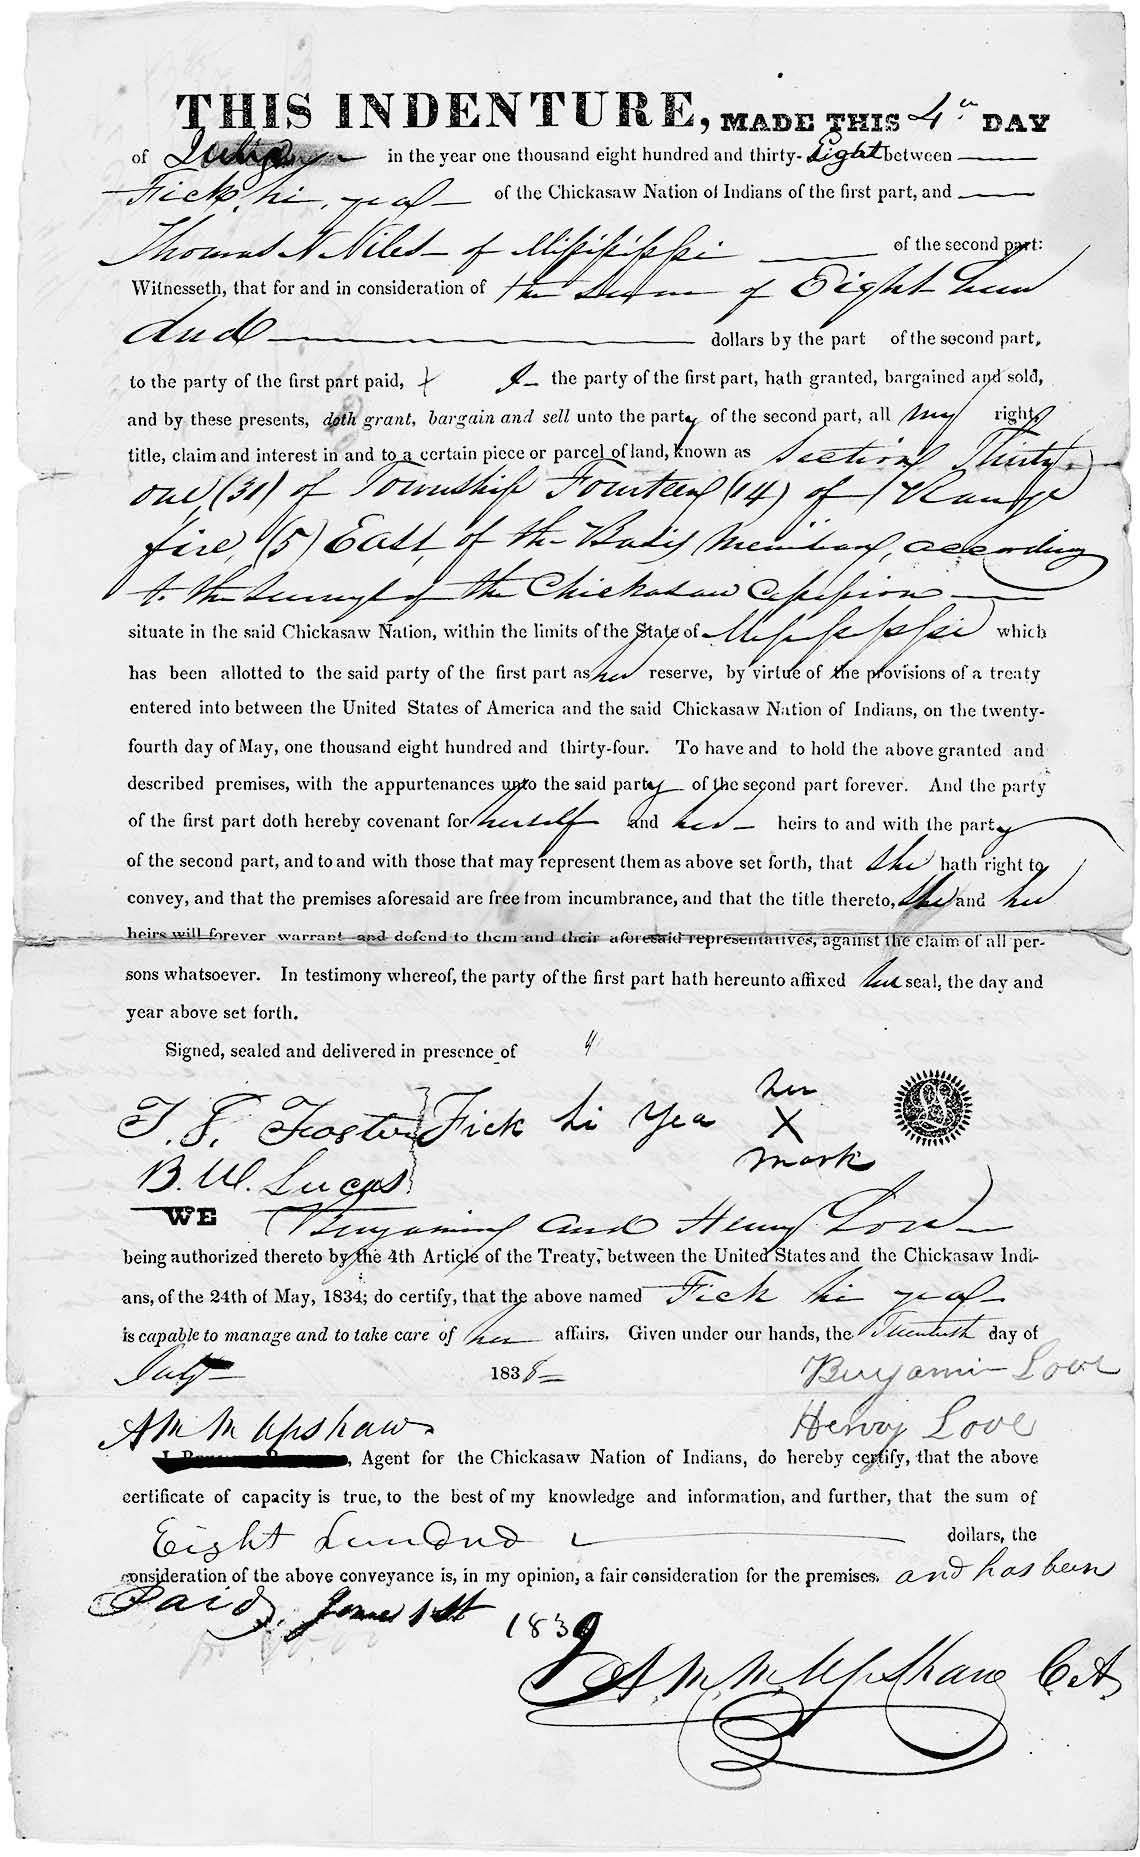 THIS INDENTURE, MADE THIS 4th DAY
of July in the year one thousand eight hundred and thirty-Eight between
Fick, hi, yea of the Chickasaw Nation of Indians of the first part, and
Thomas N Niles of Mississippi of the second part:
Witnesseth, that for and in consideration of the sum of Eight hun
dred dollars by the part of the second part,
to the party of the first part paid, I the party of the first part, hath granted, bargained and sold,
and by these presents, doth grant, bargain and sell unto the party of the second part, all my right,
title, claim and interest in and to a certain piece or parcel of land, known as Section Thirty
one (31) of Township Fourteen (14) of Range
five, (5) East, of the Basis Meridian, according
to the survey of the Chickasaw Cession
situate in the said Chickasaw Nation, within the limits of the State of Mississippi which
has been allotted to the said party of the first part as her reserve, by virtue of the provisions of a treaty
entered into between the United States of America and the said Chickasaw Nation of Indians, on the twenty-
fourth day of May, one thousand eight hundred and thirty-four. To have and to hold the above granted and
described premises, with the appurtenances unto the said party of the second part forever. And the party
of the first part doth hereby covenant for herself and her heirs to and with the party
of the second part, and to and with those that may represent them as above set forth, that she hath right to
convey, and that the premises aforesaid are free from incumbrance, and that the title thereto, she and her
heirs will forever warrant and defend to them and their aforesaid representatives, against the claim of all per-
sons whatsoever. In testimony whereof, the party of the first part hath hereunto affixed her seal, the day and
year above set forth.
Signed, sealed and delivered in presence of
her
T. J. Foster Fick hi yea X
mark
B. W. Lucas
WE Benjamin and Henry Love
being authorized thereto by the 4th Article of the Treaty, between the United States and the Chickasaw Indi-
ans, of the 24th of May, 1834; do certify, that the above named Fick hi yea
is capable to manage and to take care of her affairs. Given under our hands, the Twentieth day of
July 1838 Benjamin Love
A M M Upshaw Henry Love
, Agent for the Chickasaw Nation of Indians, do hereby certify, that the above
certificate of capacity is true, to the best of my knowledge and information, and further, that the sum of
Eight hundred dollars, the
consideration of the above conveyance is, in my opinion, a fair consideration for the premises. and has been
Paid, June 1st 1839
A. M. M. Upshaw C. A.